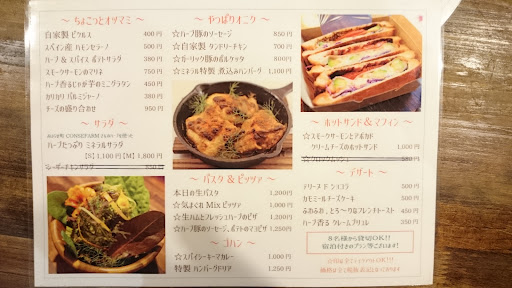 〜 ちょこっとオツマミ 〜
自家製 ピクルス 400円
スパイン産 ハモンセラーノ 500円
ハーブ & スパイス ポテトサラダ 350円
スモークサーモンのマリネ 750円
ハーブ香るじゃが芋のミニグラタン 450円
カリカリ パルミジャーノ 380円
チーズの盛り合わせ 950円
〜 サラダ 〜
ハーブたっぷり ミネラルサラダ
[S] 1,100円 [M] 1,800円
シーザーチキンサラダ 950円
〜 やっぱりオニク 〜
☆ハーブ豚のソーセージ 850円
☆自家製 タンドリーチキン 700円
☆ガーリック豚のポルケッタ
☆ミネラル特製 煮込みハンバーグ
〜 パスタ & ピッツァ 〜
本日の生パスタ 1,200円
☆気まぐれ Mix ピッツァ
☆生ハムとフレッシュハーブのピザ
☆ハーブ豚のソーセージ、ポテトのマヨピザ
〜 ゴハン 〜
☆スパイシーキーマカレー
特製 ハンバーグドリア 1,250円
〜 ホットサンド & マフィン 〜
☆スモークサーモンとアボカド
クリームチーズのホットサンド 1,000円
☆クロックムッシュ
〜 デザート 〜
テリーヌ ド ショコラ 500円
カモミールチーズケーキ
ふわふわ、とろ〜りなフレンチトースト
ハーブ香る クレームブリュレ
8名様から貸切OK!!